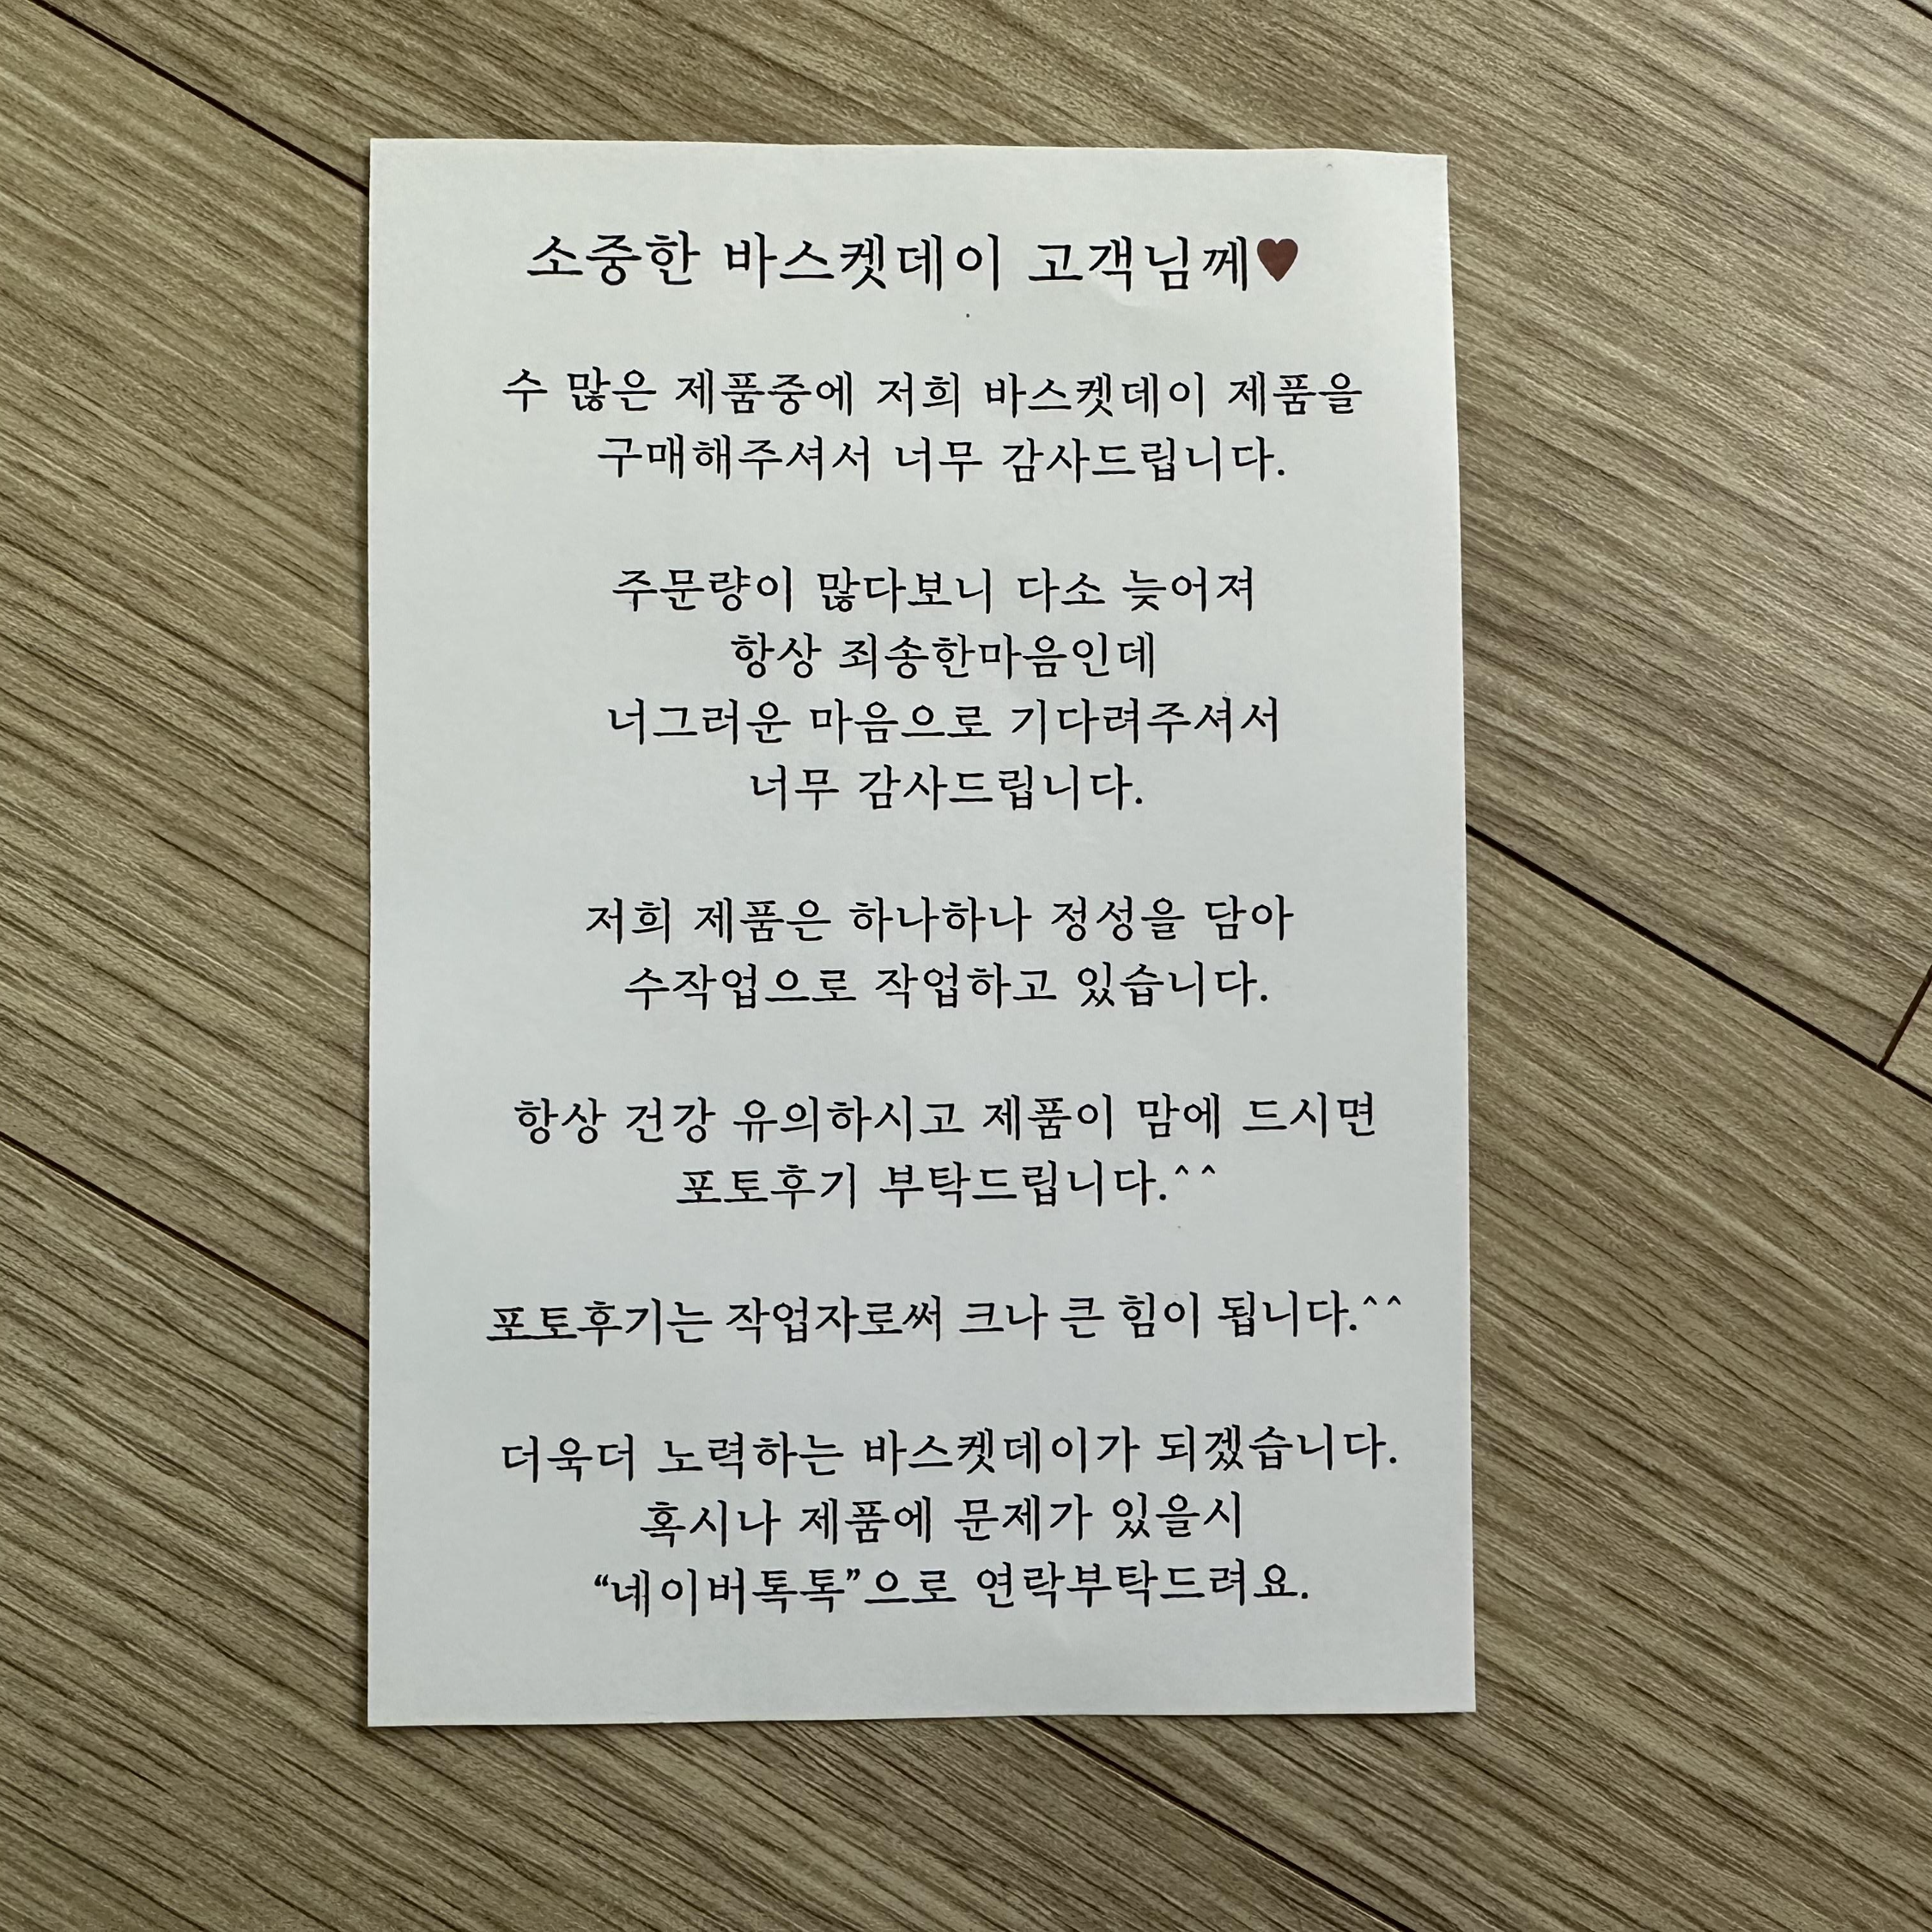 소중한 바스켓데이 고객님께♥
수 많은 제품중에 저희 바스켓데이 제품을
구매해주셔서 너무 감사드립니다.
주문량이 많다보니 다소 늦어져
항상 죄송한마음인데
너그러운 마음으로 기다려주셔서
너무 감사드립니다.
저희 제품은 하나하나 정성을 담아
수작업으로 작업하고 있습니다.
항상 건강 유의하시고 제품이 맘에 드시면
포토후기 부탁드립니다.^^
포토후기는 작업자로써 크나 큰 힘이 됩니다.^^
더욱더 노력하는 바스켓데이가 되겠습니다.
혹시나 제품에 문제가 있을시
“네이버톡톡”으로 연락부탁드려요.